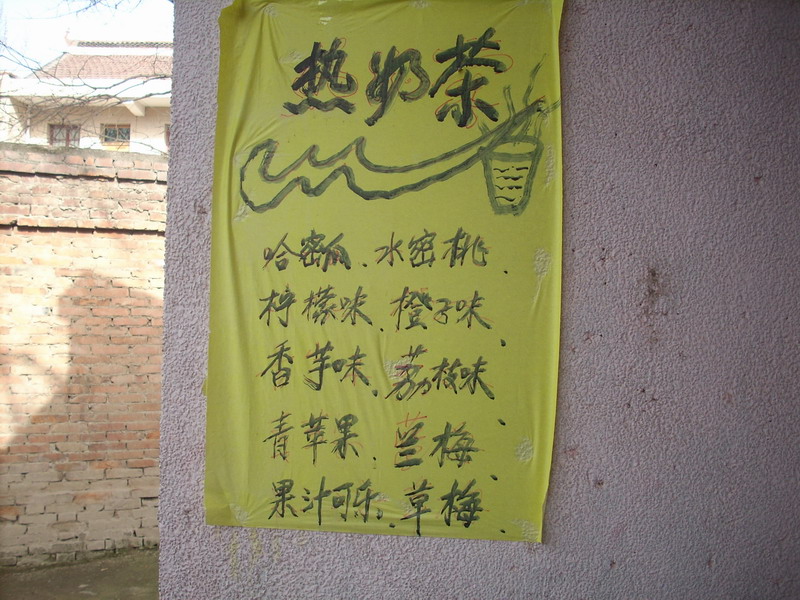 热奶茶
哈密瓜、水密桃、
柠檬味、橙子味、
香芋味、荔枝味、
青苹果、兰梅、
果汁可乐、草梅、